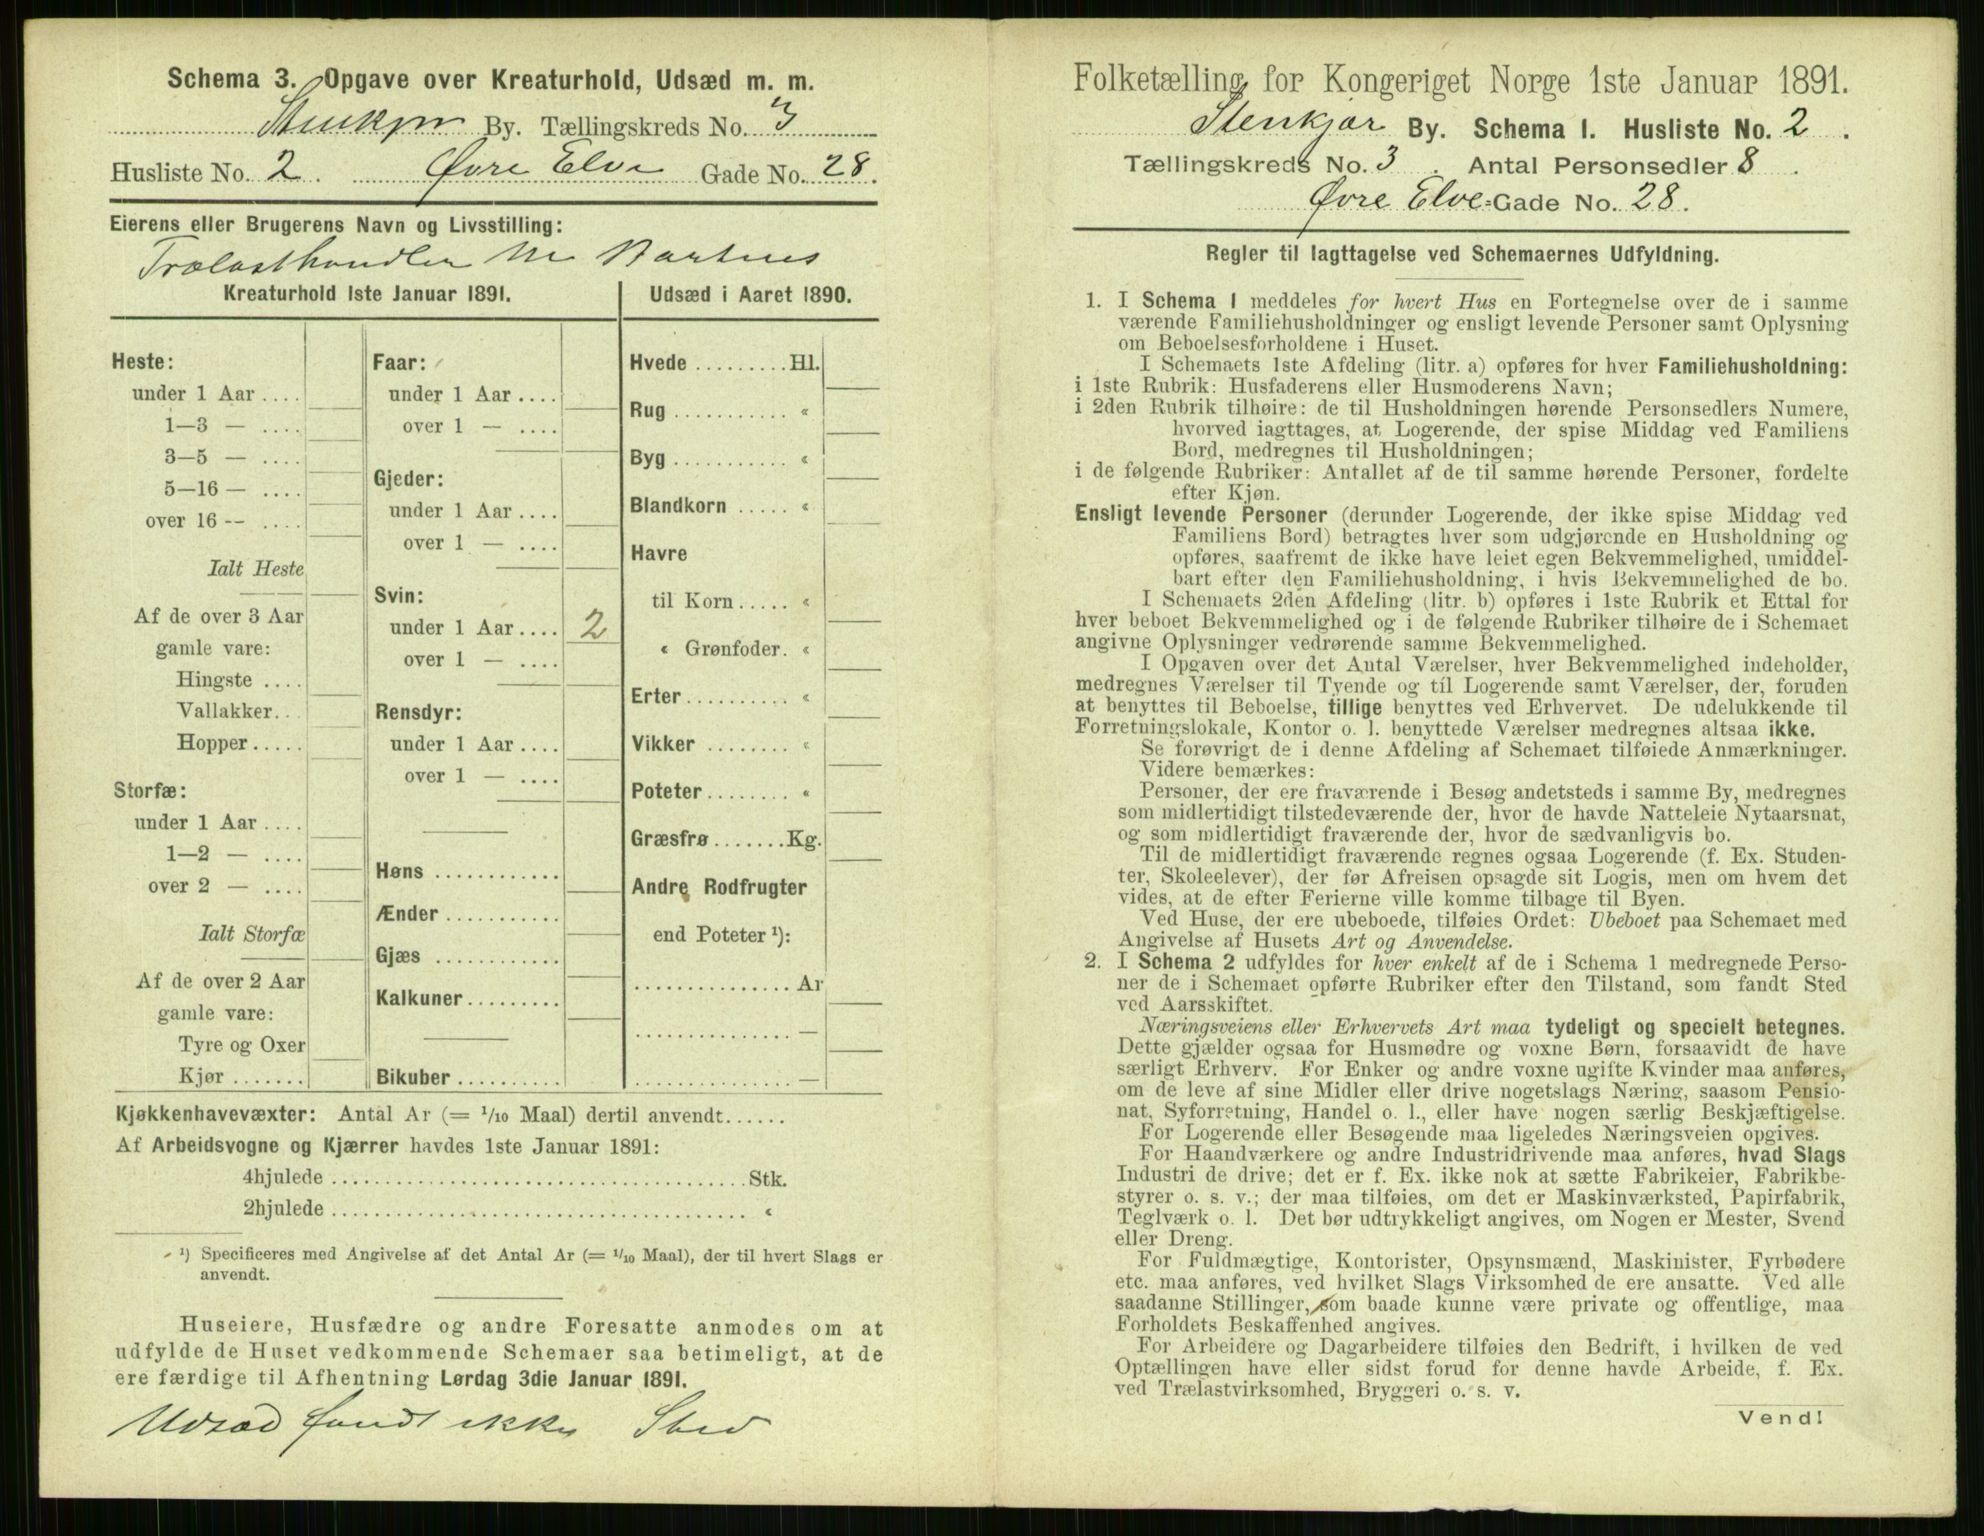 Schema 3. Opgave over Kreaturhold, Udsæd m. m.
Stenkjær By. Tællingskreds No. 3
Husliste No. 2. Øvre Elve Gade No. 28.
Eierens eller Brugerens Navn og Livsstilling:
Trælasthandler M
Kreaturhold 1ste Januar 1891.
Heste:
under 1 Aar ....
1—3 — ....
3—5 — ....
5—16 — ....
over 16 -- ....
Ialt Heste
Af de over 3 Aar
gamle vare:
Hingste ....
Vallakker...
Hopper.....
Storfæ:
under 1 Aar ....
1—2 — ....
over 2 — ....
Ialt Storfæ
Af de over 2 Aar
gamle vare:
Tyre og Oxer
Kjør .......
Faar:
under 1 Aar ....
over 1 — ....
Gjeder:
under 1 Aar ....
over 1 — ....
Svin:
under 1 Aar .... 2
over 1 — ....
Rensdyr:
under 1 Aar ....
over 1 — ....
Høns ............
Ænder ...........
Gjæs ............
Kalkuner.........
Bikuber ..........
Udsæd i Aaret 1890.
Hvede ......... Hl.
Rug ........... «
Byg ........... «
Blandkorn ..... «
Havre
til Korn ..... «
« Grønfoder. «
Erter .......... «
Vikker ........ «
Poteter ........ «
Græsfrø ....... Kg.
Andre Rodfrugter
end Poteter ¹):
............... Ar
............... —
............... —
Kjøkkenhavevæxter: Antal Ar (= 1/10 Maal) dertil anvendt......
Af Arbeidsvogne og Kjærrer havdes 1ste Januar 1891:
4hjulede ........................................ Stk.
2hjulede ........................................ «
¹) Specificeres med Angivelse af det Antal Ar (= 1/10 Maal), der til hvert Slags er
anvendt.
Huseiere, Husfædre og andre Foresatte anmodes om at
udfylde de Huset vedkommende Schemaer saa betimeligt, at de
ere færdige til Afhentning Lørdag 3die Januar 1891.
Udsæd fandt ikke Sted
Folketælling for Kongeriget Norge 1ste Januar 1891.
Stenkjær By. Schema 1. Husliste No. 2.
Tællingskreds No. 3. Antal Personsedler 8.
Øvre Elve-Gade No. 28.
Regler til Iagttagelse ved Schemaernes Udfyldning.
1. I Schema 1 meddeles for hvert Hus en Fortegnelse over de i samme
værende Familiehusholdninger og ensligt levende Personer samt Oplysning
om Beboelsesforholdene i Huset.
I Schemaets 1ste Afdeling (litr. a) opføres for hver Familiehusholdning:
i 1ste Rubrik: Husfaderens eller Husmoderens Navn;
i 2den Rubrik tilhøire: de til Husholdningen hørende Personsedlers Numere,
hvorved iagttages, at Logerende, der spise Middag ved Familiens
Bord, medregnes til Husholdningen;
i de følgende Rubriker: Antallet af de til samme hørende Personer, fordelte
efter Kjøn.
Ensligt levende Personer (derunder Logerende, der ikke spise Middag ved
Familiens Bord) betragtes hver som udgjørende en Husholdning og
opføres, saafremt de ikke have leiet egen Bekvemmelighed, umiddel-
bart efter den Familiehusholdning, i hvis Bekvemmelighed de bo.
I Schemaets 2den Afdeling (litr. b) opføres i 1ste Rubrik et Ettal for
hver beboet Bekvemmelighed og i de følgende Rubriker tilhøire de i Schemaet
angivne Oplysninger vedrørende samme Bekvemmelighed.
I Opgaven over det Antal Værelser, hver Bekvemmelighed indeholder,
medregnes Værelser til Tyende og til Logerende samt Værelser, der, foruden
at benyttes til Beboelse, tillige benyttes ved Erhvervet. De udelukkende til
Forretningslokale, Kontor o. l. benyttede Værelser medregnes altsaa ikke.
Se forøvrigt de i denne Afdeling af Schemaet tilføiede Anmærkninger.
Videre bemærkes:
Personer, der ere fraværende i Besøg andetsteds i samme By, medregnes
som midlertidigt tilstedeværende der, hvor de havde Natteleie Nytaarsnat,
og som midlertidigt fraværende der, hvor de sædvanligvis bo.
Til de midlertidigt fraværende regnes ogsaa Logerende (f. Ex. Studen-
ter, Skoleelever), der før Afreisen opsagde sit Logis, men om hvem det
vides, at de efter Ferierne ville komme tilbage til Byen.
Ved Huse, der ere ubeboede, tilføies Ordet: Ubeboet paa Schemaet med
Angivelse af Husets Art og Anvendelse.
2. I Schema 2 udfyldes for hver enkelt af de i Schema 1 medregnede Perso-
ner de i Schemaet opførte Rubriker efter den Tilstand, som fandt Sted
ved Aarsskiftet.
Næringsveiens eller Erhvervets Art maa tydeligt og specielt betegnes.
Dette gjælder ogsaa for Husmødre og voxne Børn, forsaavidt de have
særligt Erhverv. For Enker og andre voxne ugifte Kvinder maa anføres,
om de leve af sine Midler eller drive nogetslags Næring, saasom Pensio-
nat, Syforretning, Handel o. l., eller have nogen særlig Beskjæftigelse.
For Logerende eller Besøgende maa ligeledes Næringsveien opgives.
For Haandværkere og andre Industridrivende maa anføres, hvad Slags
Industri de drive; det er f. Ex. ikke nok at sætte Fabrikeier, Fabrikbe-
styrer o. s. v.; der maa tilføies, om det er Maskinværksted, Papirfabrik,
Teglværk o. l. Det bør udtrykkeligt angives, om Nogen er Mester, Svend
eller Dreng.
For Fuldmægtige, Kontorister, Opsynsmænd, Maskinister, Fyrbødere
etc. maa anføres, ved hvilket Slags Virksomhed de ere ansatte. Ved alle
saadanne Stillinger, som baade kunne være private og offentlige, maa
Forholdets Beskaffenhed angives.
For Arbeidere og Dagarbeidere tilføies den Bedrift, i hvilken de ved
Optællingen have eller sidst forud for denne havde Arbeide, f. Ex.
ved Trælastvirksomhed, Bryggeri o. s. v.
Vend!